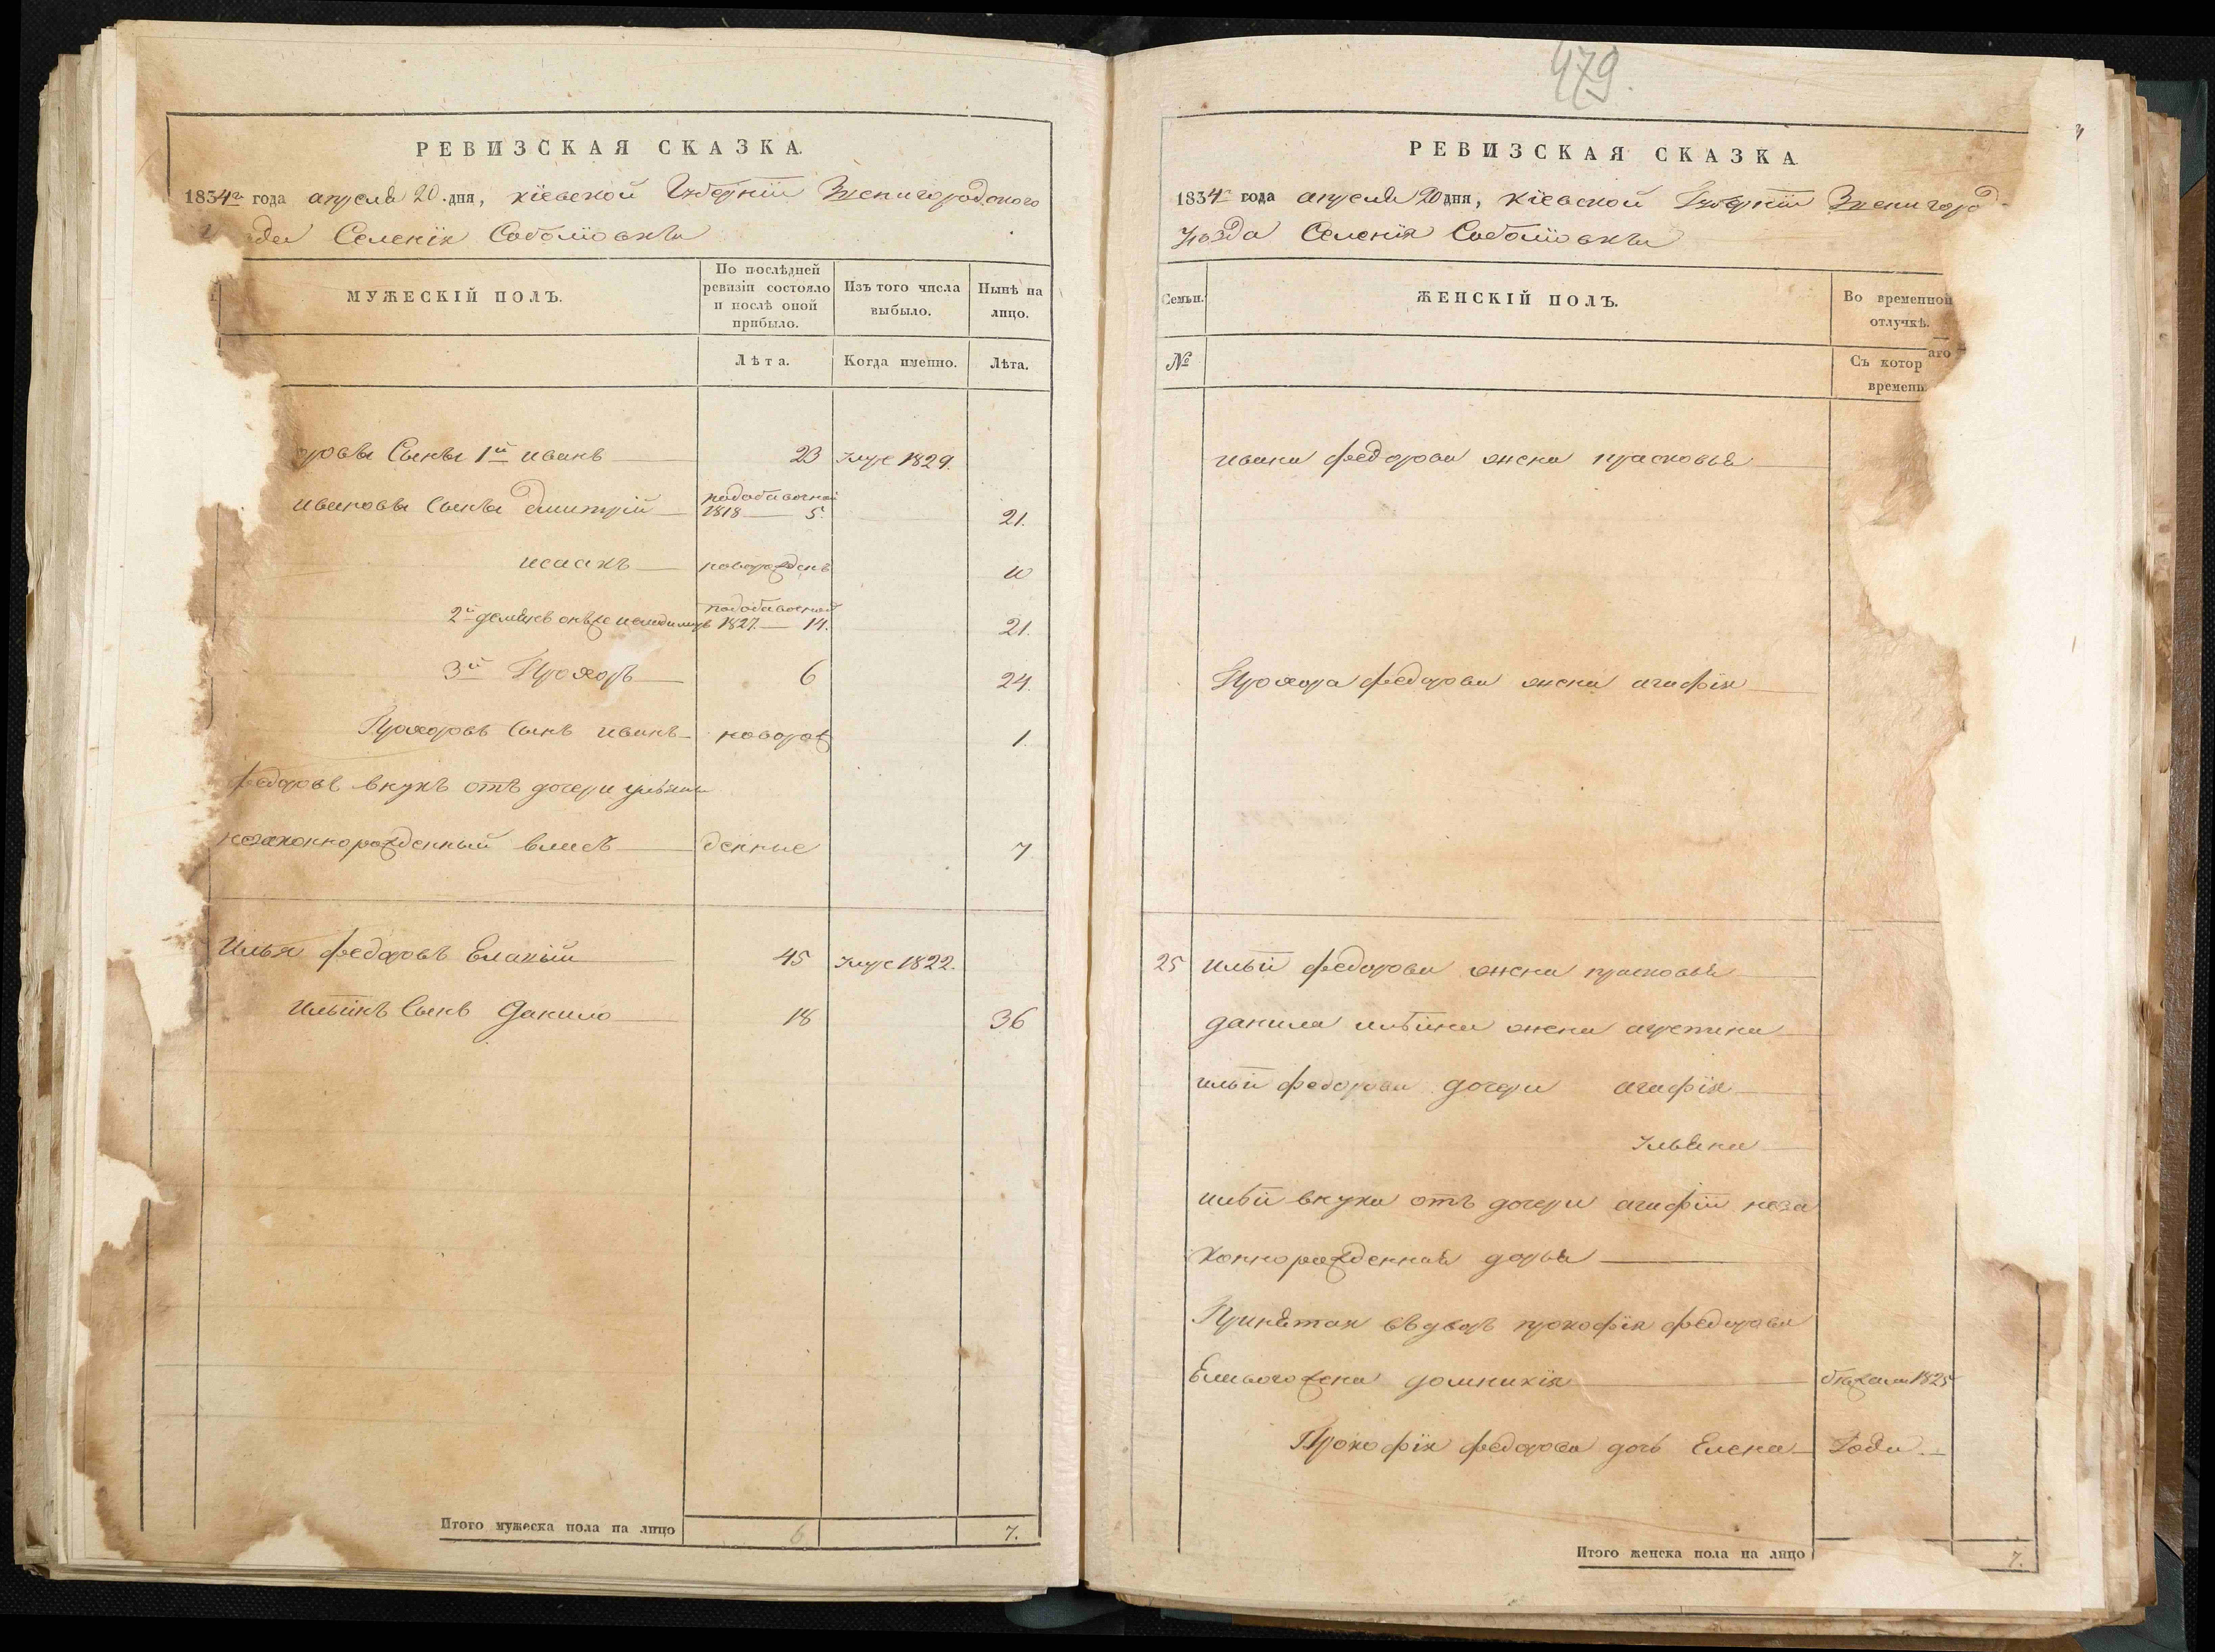 РЕВИЗСКАЯ СКАЗКА.
1834го года апреля 20. дня, кіевской Губерніи Звенигородского
Селенія Соболювки
МУЖЕСКІЙ ПОЛЪ.
По послѣдней ревизіи состояло и послѣ оной прибыло.
Изъ того числа выбыло.
Нынѣ на лицо.
Лѣта.
Когда именно.
Лѣта.
ровы Сыны 1й иванъ 23 умре 1829.
ивановы Сыны дмитрій подобавочной 1818 5. 21.
исаакъ новорожденъ 10
2й демянъ онже подобавочной 1827. 14. 21.
3й Прохоръ 6 24.
Прохоровъ Сынъ иванъ новорож 1.
федоровъ внукъ отъ дочери ульяны
незаконнорожденный власъ денные 7
Илья федоровъ 45 умре 1822.
Ильинъ Сынъ Данило 18 36
Итого мужеска пола на лицо 6 7.
479.
РЕВИЗСКАЯ СКАЗКА.
1834го года апреля 20 дня, Кіевской Губерніи Звенигород
уезда Селенія Соболювки
Семьи.
ЖЕНСКІЙ ПОЛЪ.
Во временной отлучкѣ.
№
Съ котораго времени
ивана федорова жена прасковья
Прохора федорова жена агафія
25 ильи федорова жена прасковья
данила ильина жена
ильи федорова дочери агафія
ульяна
ильи внука отъ дочери агафіи неза
коннорожденная дарья
Принятая въ дворъ прокофія федорова
жена домникія бежали 1825
Прокофія федорова дочь Елена Года
Итого женска пола на лицо 7.